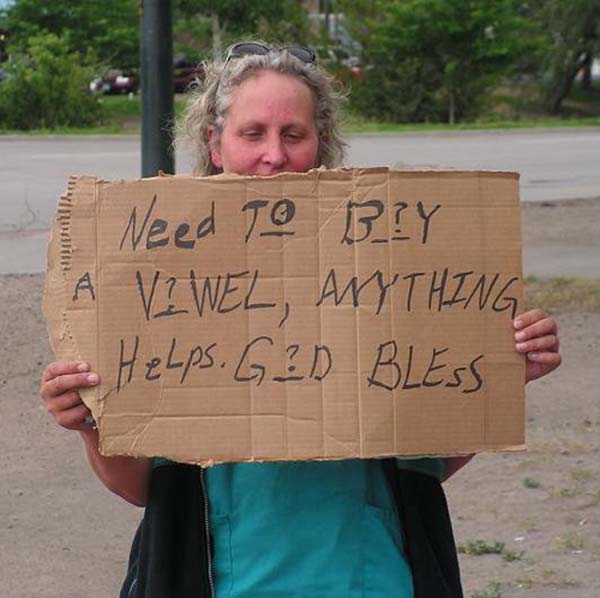 Need To B?Y
A V?WEL, ANYTHING
HeLPs. G?D BLEss